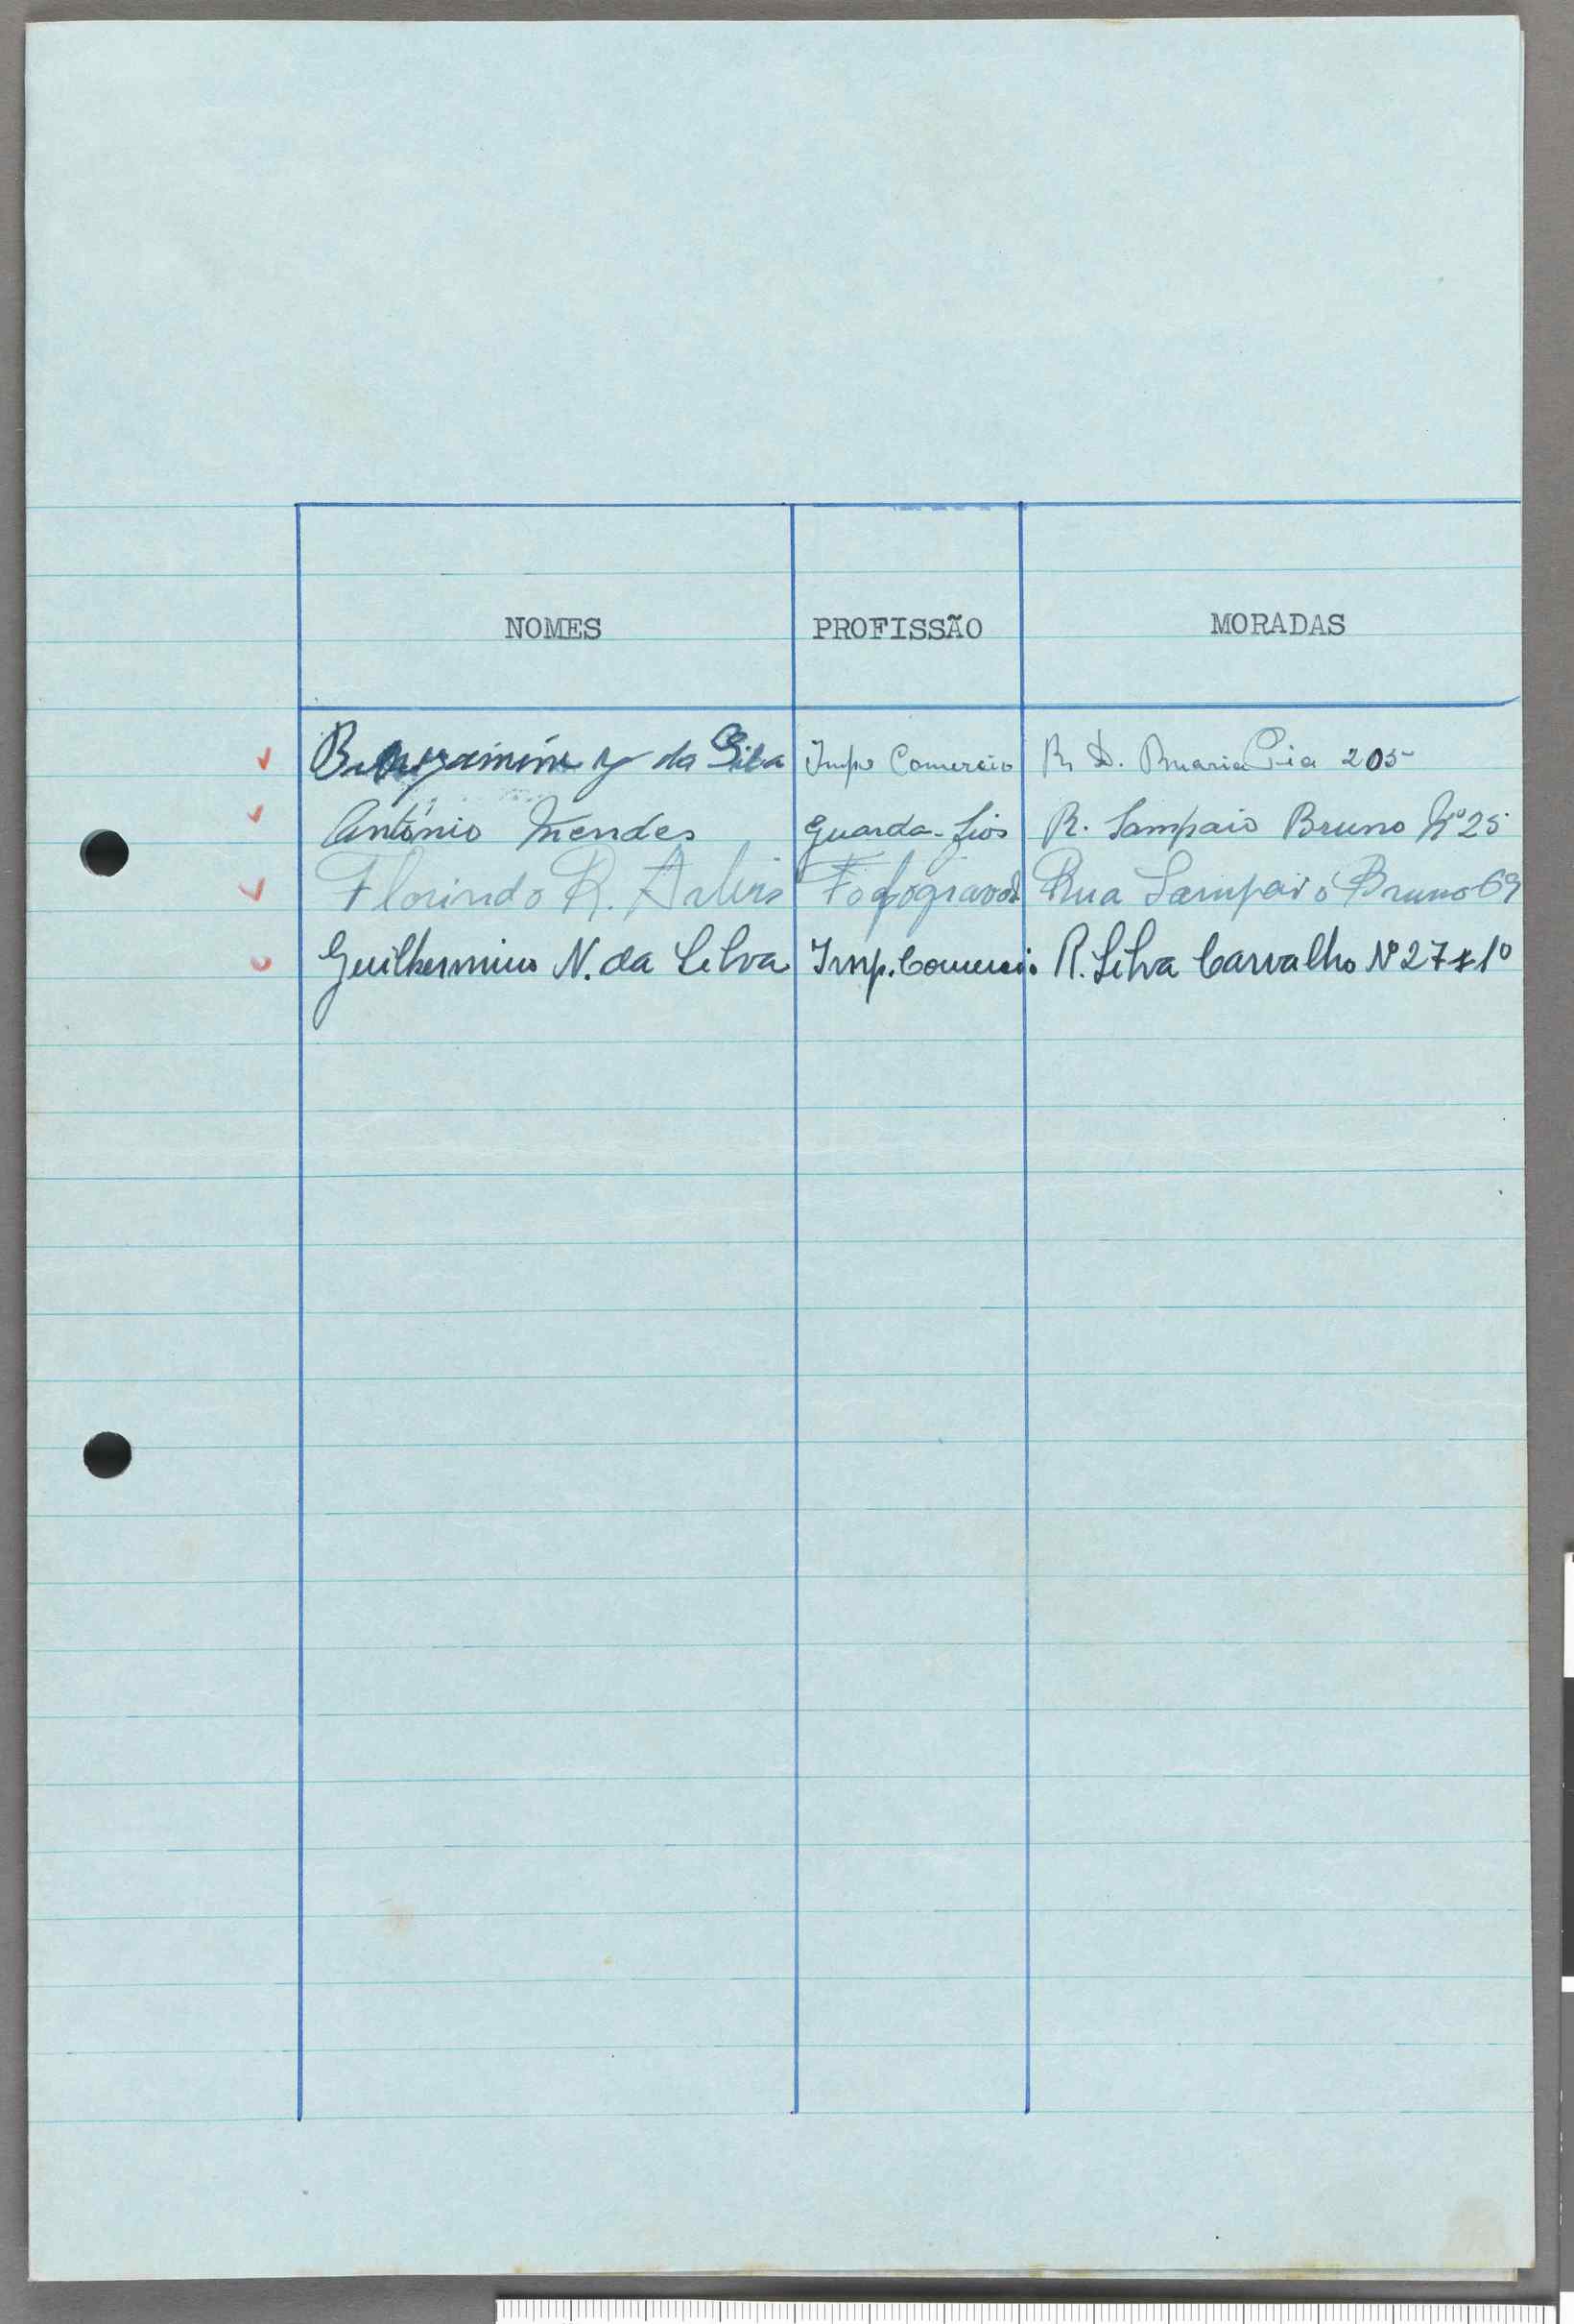 NOMES PROFISSÃO MORADAS
da Silva Imp Comercio R. D. Maria Pia 205
António Mendes Guarda-fios R. Sampaio Bruno Nº 25
Florindo R. Rua Sampaio Bruno 69
Guilhermino N. da Silva Imp. Comercio R. Silva Carvalho Nº 27 1º